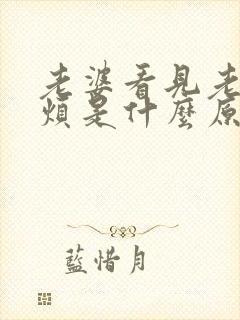 老婆看見老
煩是什麼原
藍惜月